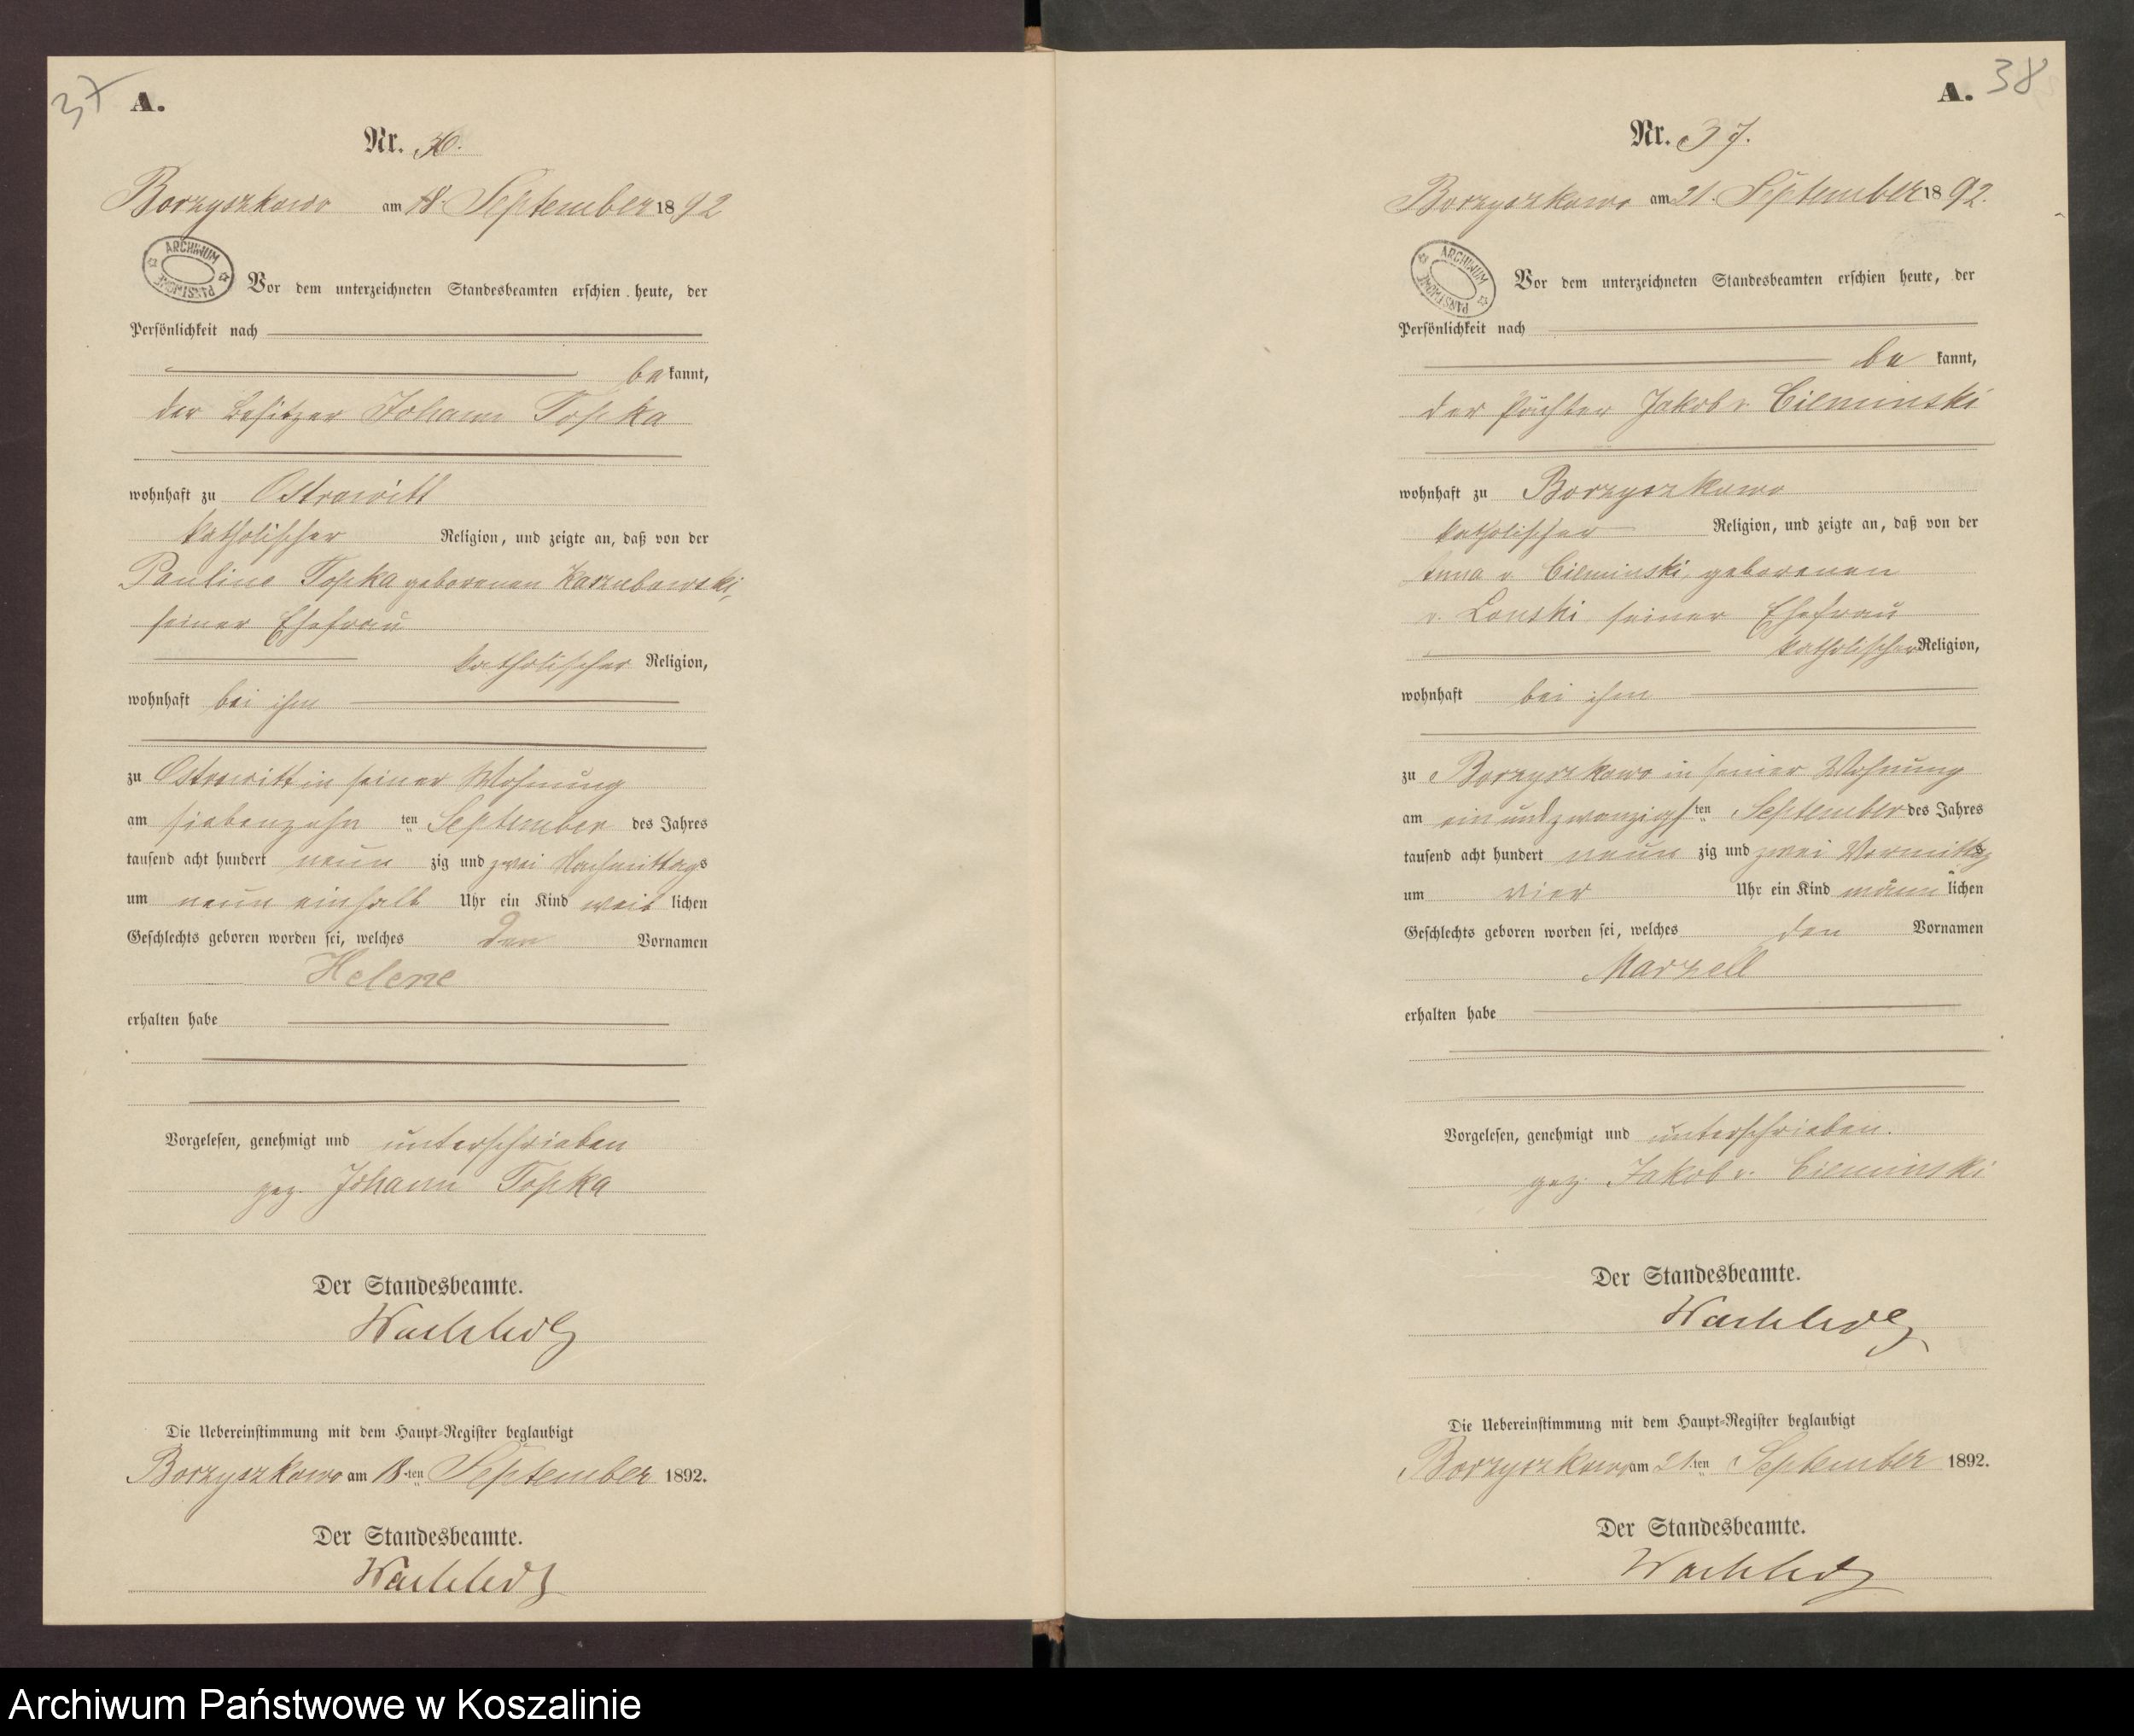 37 A.
Nr. 36.
Borzyszkowo am 18. September 1892
ARCHIWUM PAŃSTWOWE
Vor dem unterzeichneten Standesbeamten erschien heute, der
Persönlichkeit nach
bekannt,
der Besitzer Johann Topka
wohnhaft zu Ostrowitt
katholischer Religion, und zeigte an, daß von der
Pauline Topka geborenen
seiner Ehefrau
katholischer Religion,
wohnhaft bei ihm
zu Ostrowitt in seiner Wohnung
am siebenzehnten September des Jahres
tausend acht hundert neunzig und zwei Nachmittags
um neun einhalb Uhr ein Kind weiblichen
Geschlechts geboren worden sei, welches den Vornamen
Helene
erhalten habe
Vorgelesen, genehmigt und unterschrieben
gez. Johann Topka
Der Standesbeamte.
Die Uebereinstimmung mit dem Haupt-Register beglaubigt
Borzyszkowo am 18.ten September 1892.
Der Standesbeamte.
A. 38
Nr. 37.
Borzyszkowo am 21. September 1892.
ARCHIWUM PAŃSTWOWE
Vor dem unterzeichneten Standesbeamten erschien heute, der
Persönlichkeit nach
bekannt,
der Pächter Jakob v. Cieminski
wohnhaft zu Borzyszkowo
katholischer Religion, und zeigte an, daß von der
Anna v. Cieminski, geborenen
v. Lonski seiner Ehefrau
katholischer Religion,
wohnhaft bei ihm
zu Borzyszkowo in seiner Wohnung
am ein und zwanzigsten September des Jahres
tausend acht hundert neunzig und zwei Vormittags
um vier Uhr ein Kind männlichen
Geschlechts geboren worden sei, welches den Vornamen
Marzell
erhalten habe
Vorgelesen, genehmigt und unterschrieben.
gez. Jakob v. Cieminski
Der Standesbeamte.
Die Uebereinstimmung mit dem Haupt-Register beglaubigt
Borzyszkowo am 21.ten September 1892.
Der Standesbeamte.
Archiwum Państwowe w Koszalinie